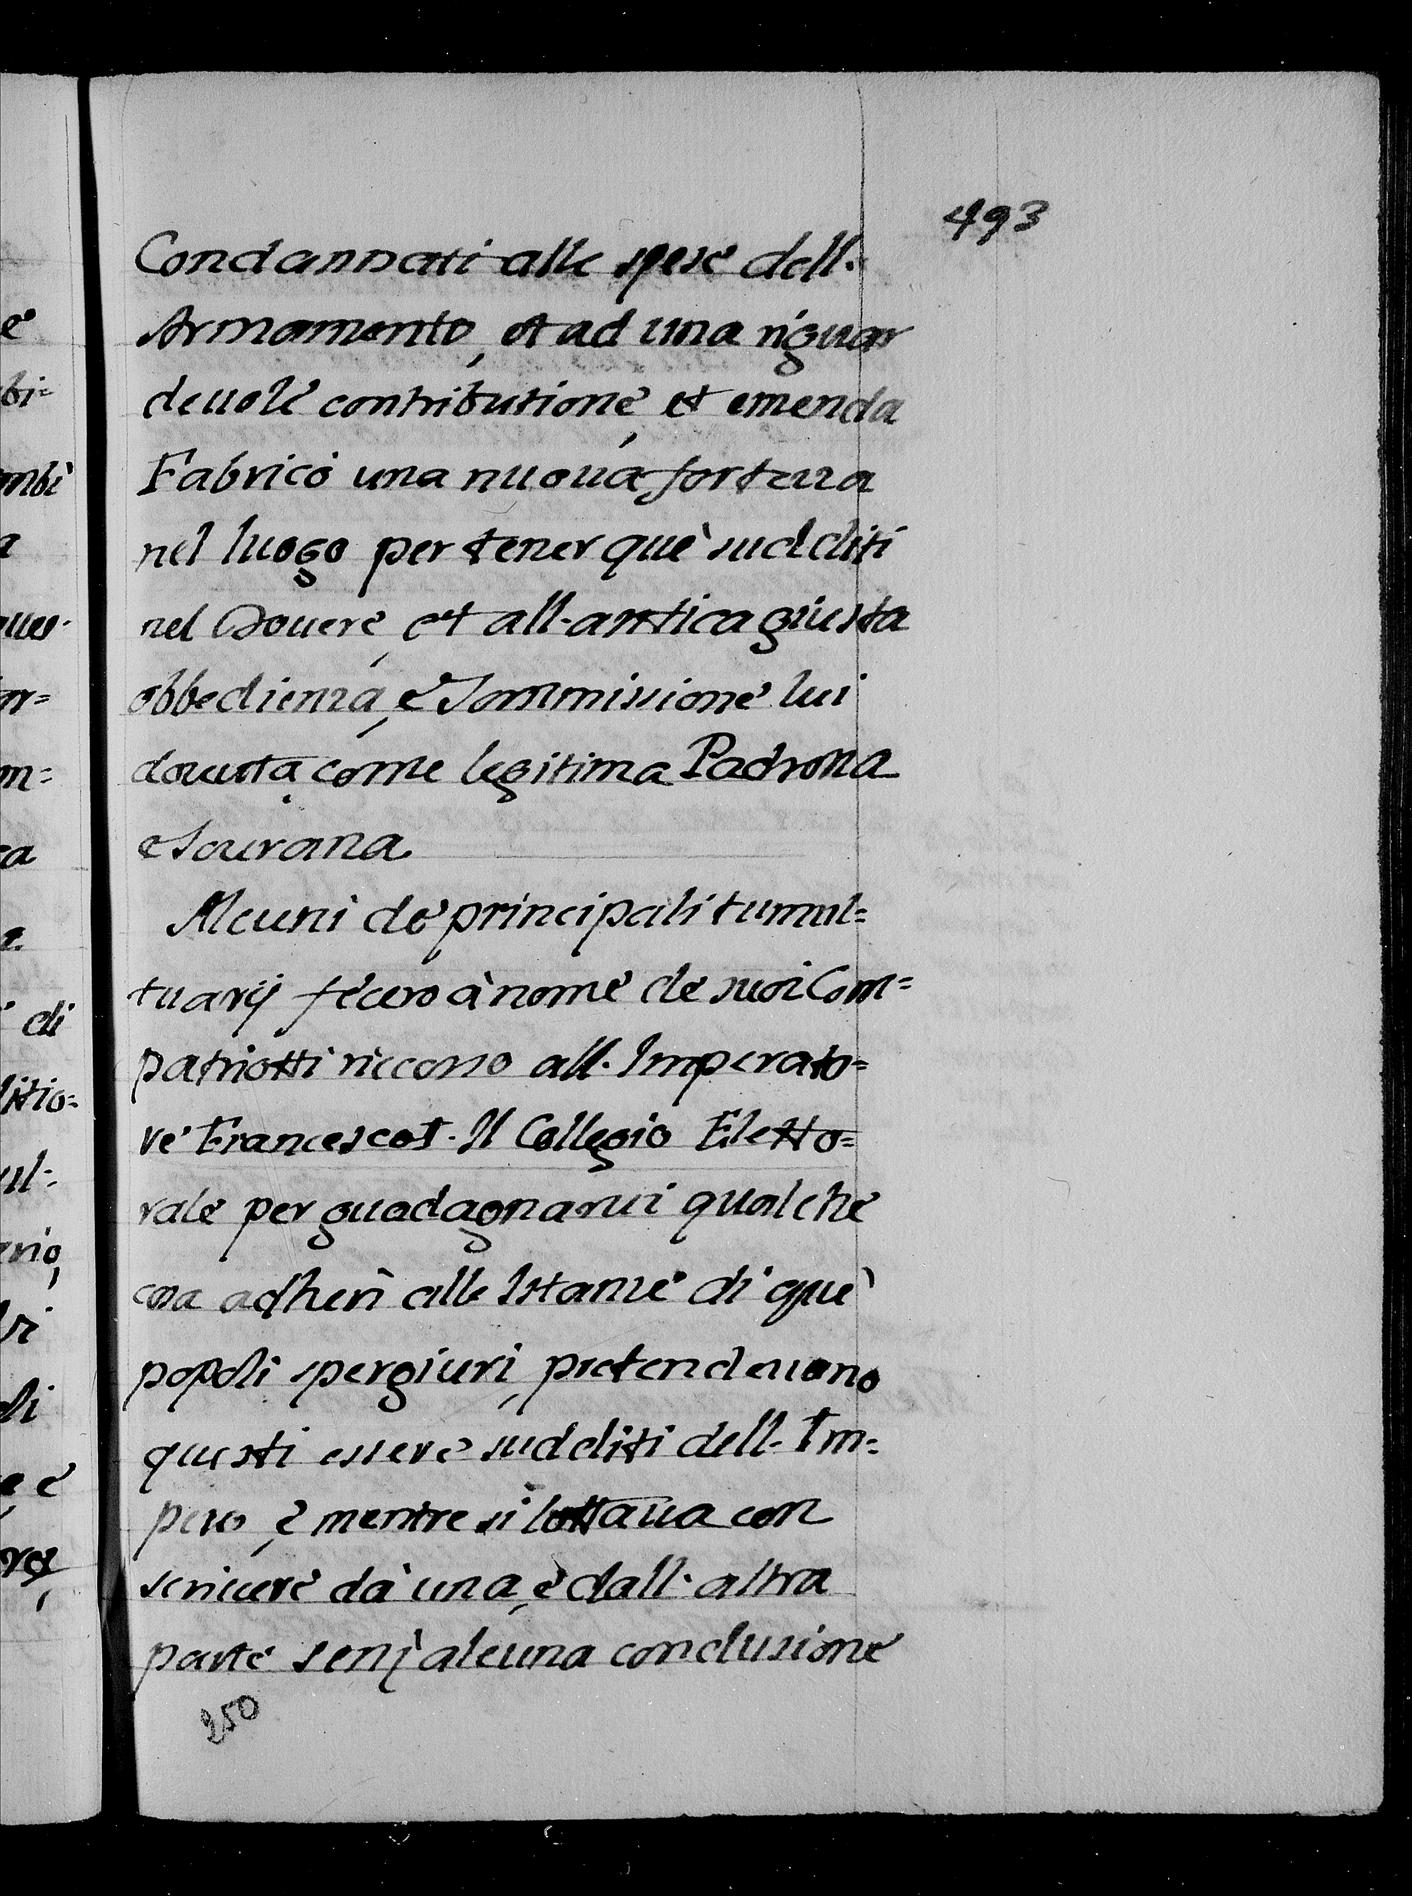 493
Condannati alle spese dell.
Armamento, et ad una riguar
deuole contributione, et emenda
Fabricò una nuoua fortezza
nel luogo per tener què sudditi
nel Douere, et all. antica giusta
obbedienza, e Sommissione lui
douuta, come legitima Padrona
e Sourana
Alcuni de principali tumul=
tuarij fecero à nome de suoi Com=
patriotti riccorso all. Imperato=
re Francesco I. Il Collegio Eletto=
rale per guadagnarui qualche
cosa adherì alle Istanze di què
popoli spergiuri, pretendeuano
questi essere sudditi dell. Im=
pero, e mentre si lottaua con
scriuere da una, e dall. altra
parte senz' alcuna conclusione
250